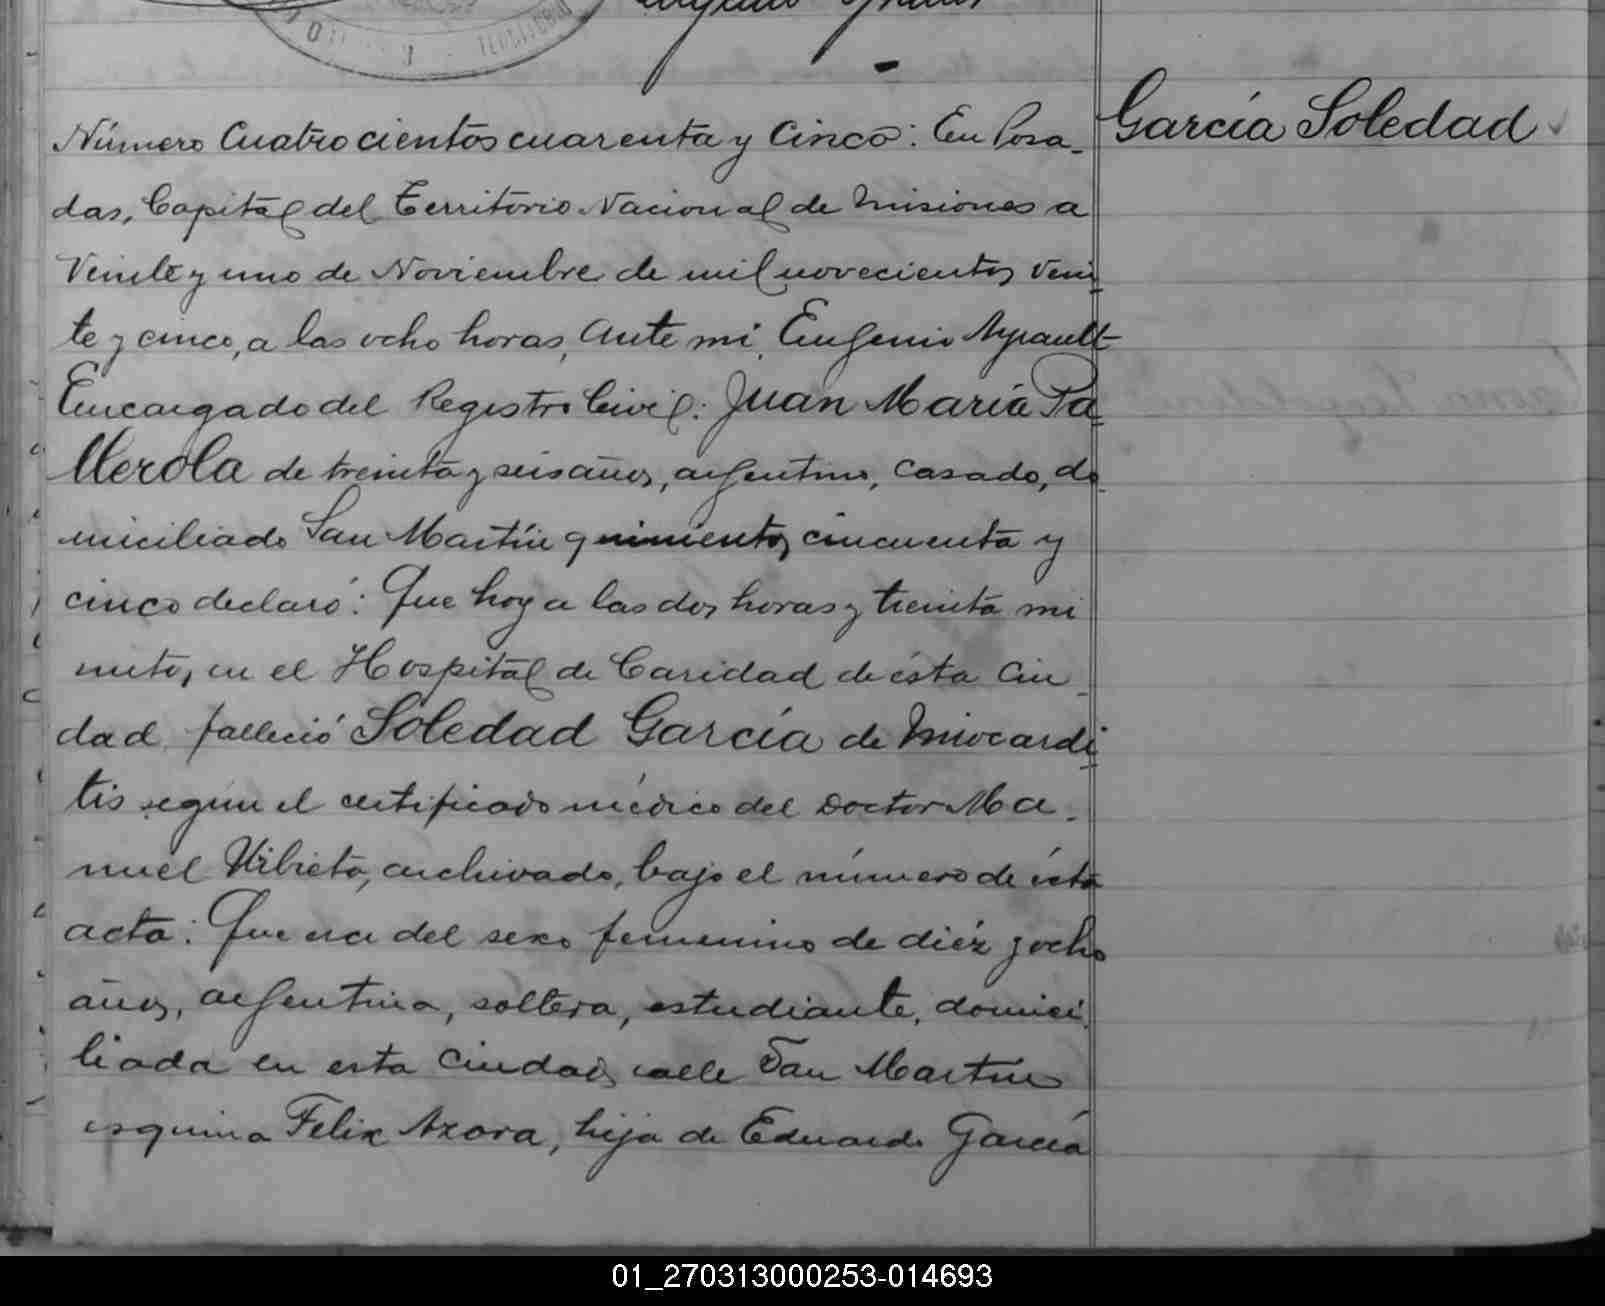 García Soledad
Número Cuatrocientos cuarenta y cinco: En Posa-
das, Capital del Territorio Nacional de Misiones a
Veinte y uno de Noviembre de mil novecientos vein-
te y cinco, a las ocho horas, ante mi, Eugenio Ayrault
Encargado del Registro Civil: Juan María Pa-
llerola de treinta y seis años, argentino, casado, do-
miciliado San Martín quinientos cincuenta y
cinco declaró: Que hoy a las dos horas y treinta mi
nutos, en el Hospital de Caridad de ésta Ciu-
dad, falleció Soledad García de Miocardi-
tis según el certificado médico del Doctor Ma-
nuel archivado, bajo el número de ésta
acta: Que era del sexo femenino de diéz y ocho
años, argentina, soltera, estudiante, domici-
liada en esta Ciudad, calle San Martín
esquina Felix Azara, hija de Eduardo García
01_270313000253-014693